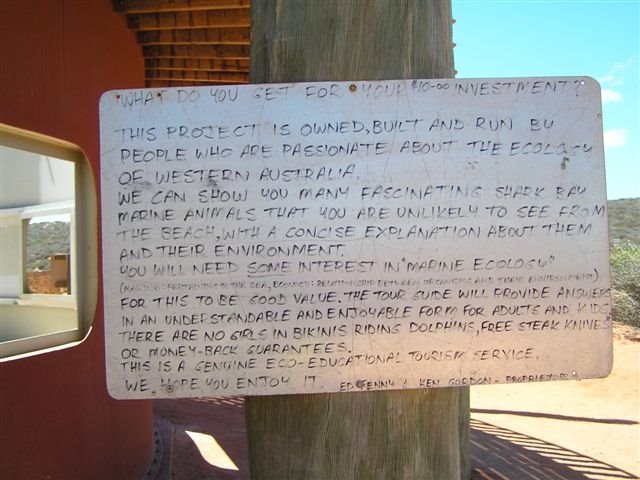 WHAT DO YOU GET FOR YOUR $10-00 INVESTMENT?
THIS PROJECT IS OWNED, BUILT AND RUN BY
PEOPLE WHO ARE PASSIONATE ABOUT THE ECOLOGY
OF WESTERN AUSTRALIA.
WE CAN SHOW YOU MANY FASCINATING SHARK BAY
MARINE ANIMALS THAT YOU ARE UNLIKELY TO SEE FROM
THE BEACH, WITH A CONCISE EXPLANATION ABOUT THEM
AND THEIR ENVIRONMENT.
YOU WILL NEED SOME INTEREST IN "MARINE ECOLOGY"
(MARINE: PERTAINING TO THE SEA, ECOLOGY: RELATIONSHIP BETWEEN ORGANISMS AND THEIR ENVIRONMENT)
FOR THIS TO BE GOOD VALUE. THE TOUR GUIDE WILL PROVIDE ANSWERS
IN AN UNDERSTANDABLE AND ENJOYABLE FORM FOR ADULTS AND KIDS.
THERE ARE NO GIRLS IN BIKINIS RIDING DOLPHINS, FREE STEAK KNIVES
OR MONEY-BACK GUARANTEES.
THIS IS A GENUINE ECO-EDUCATIONAL TOURISM SERVICE.
WE HOPE YOU ENJOY IT. ED FENNY & KEN GORDON - PROPRIETORS